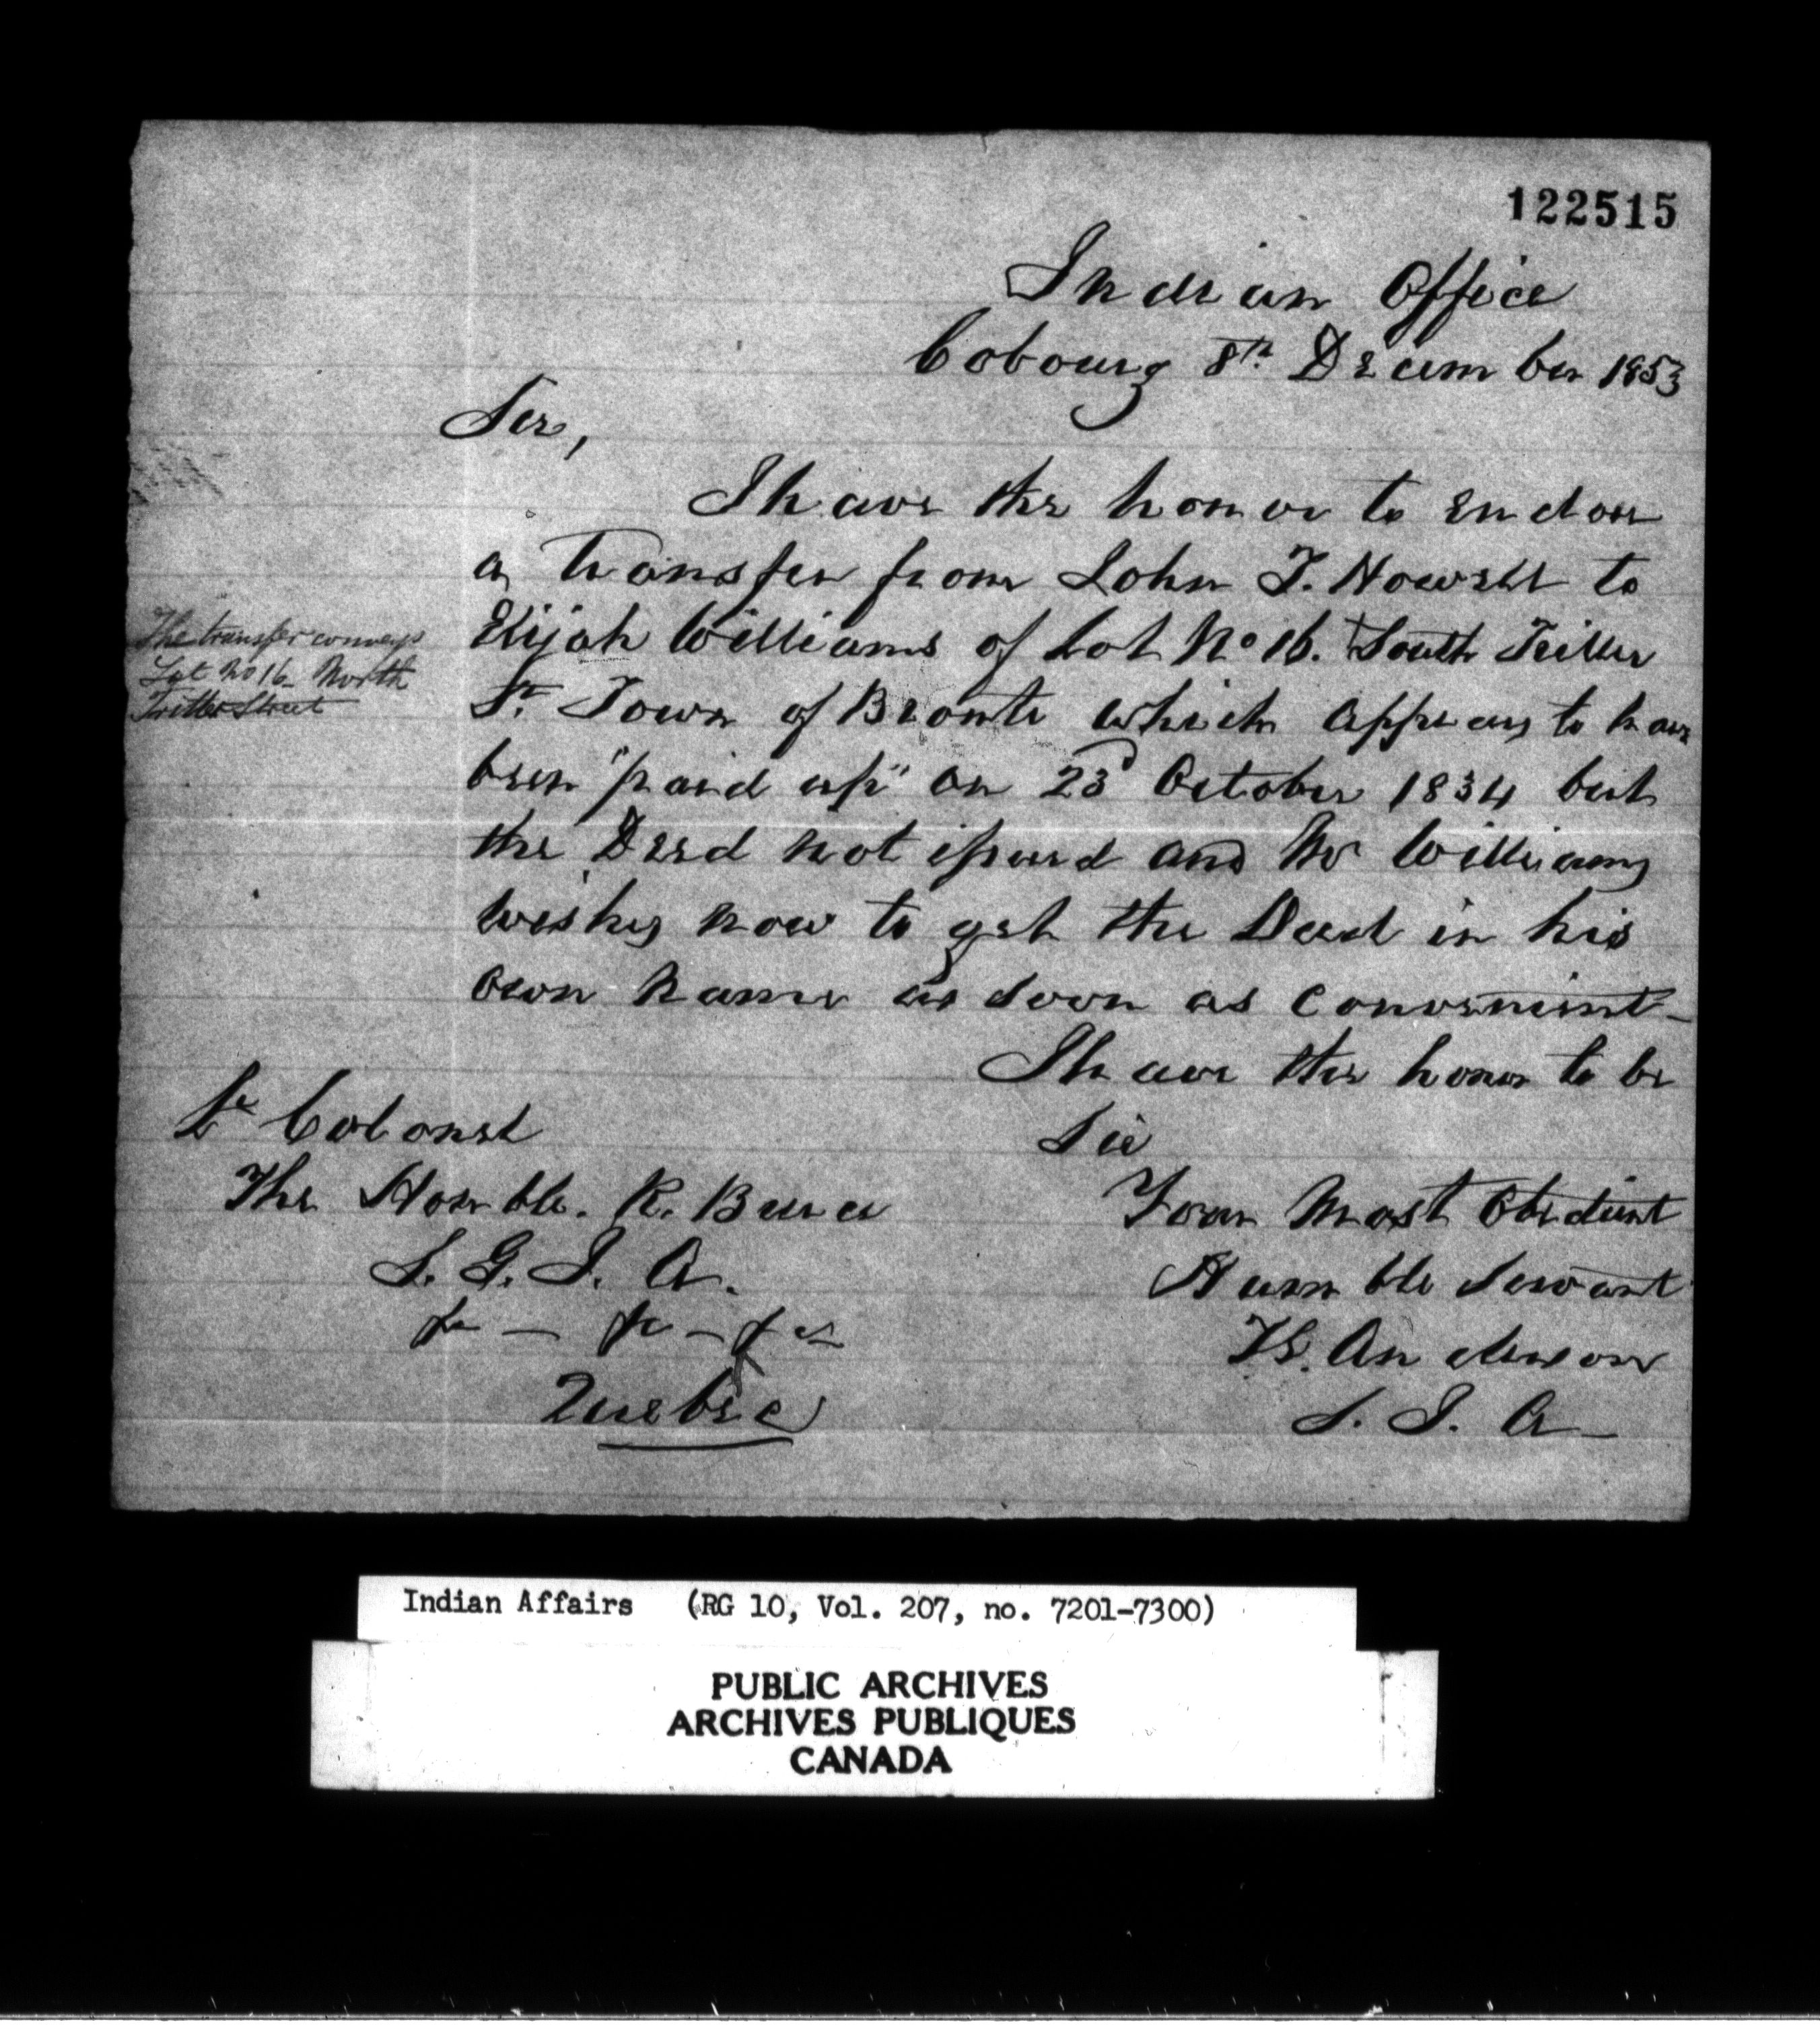 122515
Indian Office
Cobourg 8th December 1853
Sir,
I have the honor to enclose
a Transfer from John T. Howell to
Elijah Williams of Lot No 16. South Triller
St. Town of Bronte which appears to have
been "paid up" on 23d October 1834 but
the Deed not issued and Mr Williams
wishes now to get the Deed in his
own name as soon as convenient-
The transfer conveys
Lot No 16- North
Triller Street
I have the honor to be
Sir
Your Most Obedient
Humble Servant
T. G. Anderson
S. I. A-
Lt Colonel
The Honble. R. Bruce
S. G. I. A.
Quebec
Indian Affairs (RG 10, Vol. 207, no. 7201-7300)
PUBLIC ARCHIVES
ARCHIVES PUBLIQUES
CANADA